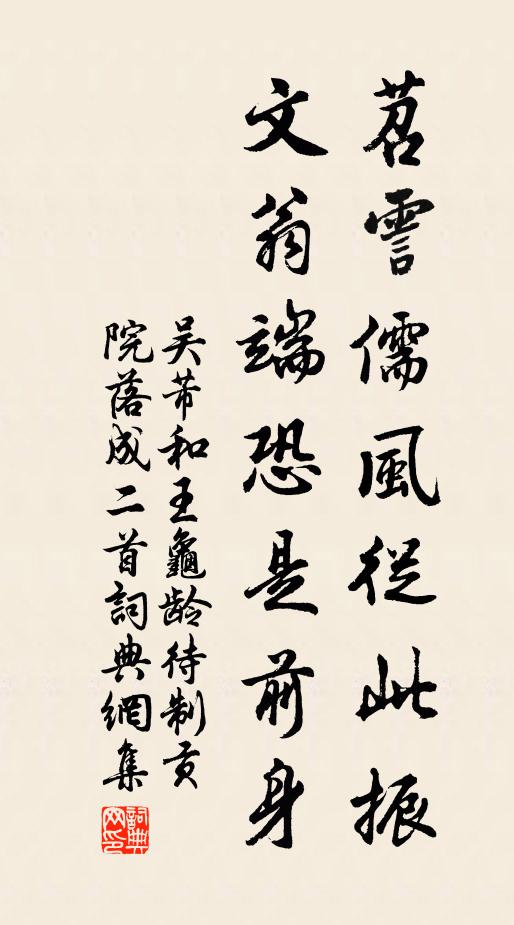 苕霅儒風從此振
文翁端恐是前身
吴芾和王龜齡待制貢
院落成二首詞典網集
詞典
网印